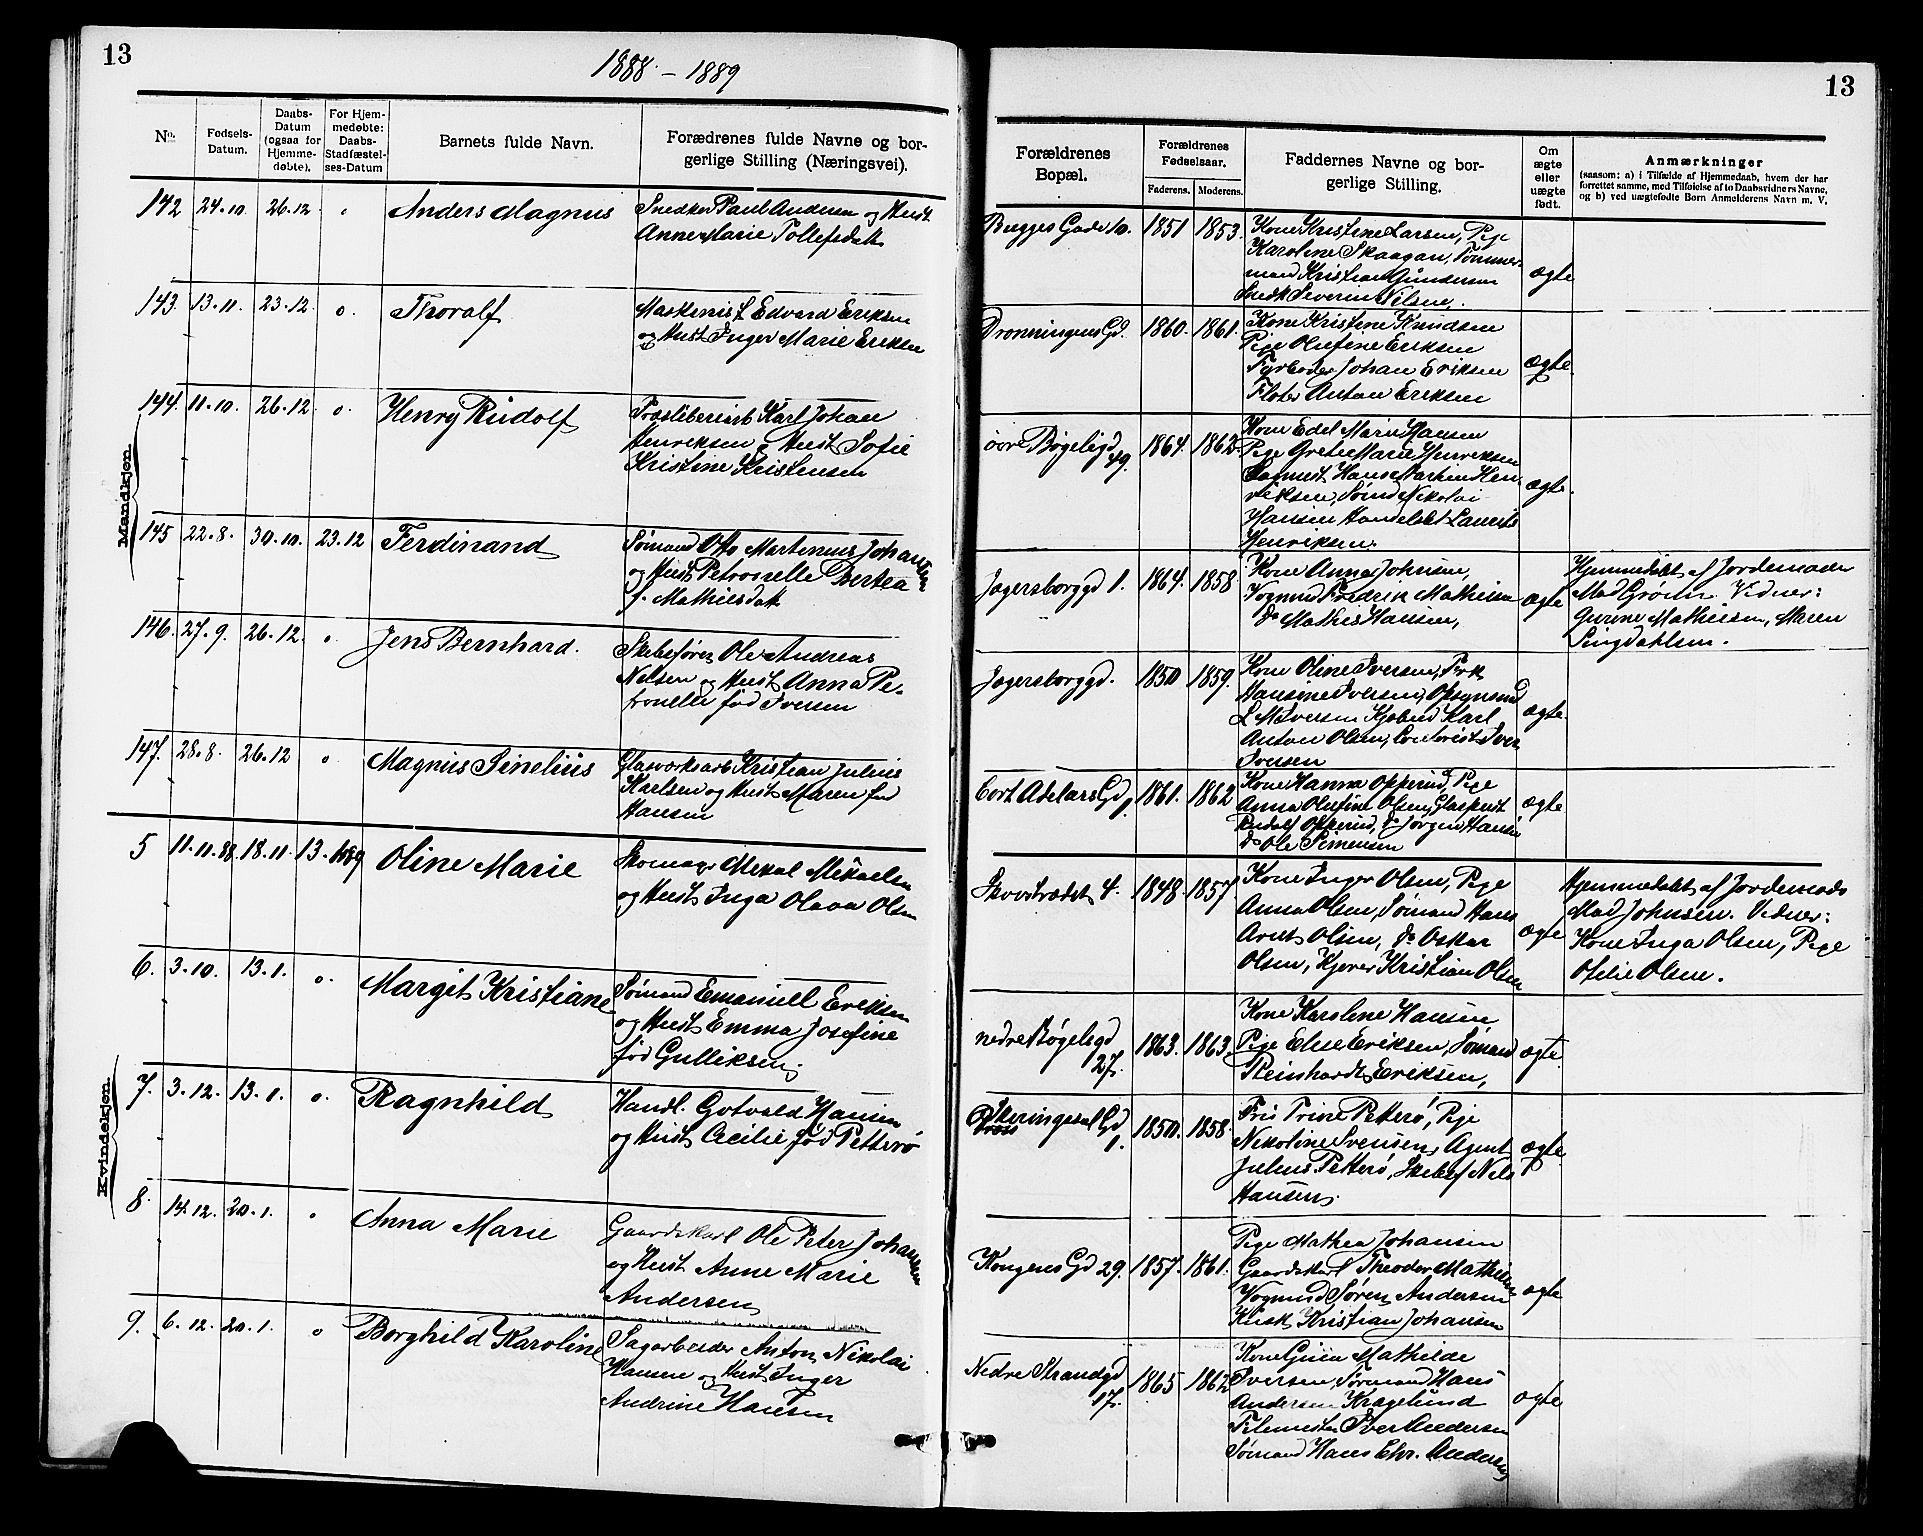 13
1888 - 1889
No.
Fødsels-
Datum.
Daabs-
Datum
(ogsaa for
Hjemme-
døbte).
For Hjem-
medøbte:
Daabs-
Stadfæstel-
ses-Datum
Barnets fulde Navn.
Forældrenes fulde Navne og bor-
gerlige Stilling (Næringsvei).
Mandkjøn
142 24.10. 26.12 " Anders Magnus
Snedker Paul Andersen og Hust.
Anne Marie Tollefsdatt
143. 13.11. 23.12. o. Thoralf
Maskinist Edvard Eriksen
og Hust Inger Marie Eriksen
144. 11.10. 26.12. o. Henry Rudolf
Karl Johan
Henriksen og Hust Sofie
Kristine Kristensen
145 22.8. 30.10. 23.12 Ferdinand
Sømand Otto Martinius Johansen
og Hust Petronelle Bertea
f. Mathisdatt
146. 27.9. 26.12. o. Jens Bernhard.
Skibsfører Ole Andreas
Nelsen og Hust Anna Pe-
tronelle fød Iversen
147. 28.8. 26.12 o Magnus Sinelius
Glasværksarb Kristian Julius
Karlsen og Hust Maren fød
Hansen
Kvindekjøn
5 11.11.88 18.11 13.1889 Oline Marie
Skomager Mikal Mikaelsen
og Hust Inga Olava Olsen
6. 3.10. 13.1. o. Margit Kristiane
Sømand Emanuel Eriksen
og Hust Emma Josefine
fød Gulliksen
7. 3.12. 13.1. o. Ragnhild
Handl. Gotvald Hansen
og Hust Cecilie fød Petterø
8. 14.12. 20.1. " Anna Marie
Gaardskarl Ole Peter Johansen
og Hust Anne Marie
Andersen
9. 6.12. 20.1. o Borghild Karoline
Sagarbeider Anton Nikolai
Hansen og Hust Inger
Andrine Hansen
13
Forældrenes
Bopæl.
Forældrenes
Fødselsaar.
Faderens. Moderens.
Faddernes Navne og bor-
gerlige Stilling.
Om
ægte
eller
uægte
født.
Anmærkninger
(saasom: a) i Tilfælde af Hjemmedaab, hvem der har
forrettet samme, med Tilføielse af to Daabsvidners Navne,
og b) ved uægtefødte Børn Anmelderens Navn m. V.
Bugges Gade 10. 1851 1853.
Kone Kristine Larsen, Pige
Karoline Skaagan, Tømmer-
mand Kristian Gundersen
Snedk Severin Nilsen.
ægte
Dronningens Gd. 1860. 1861.
Kone Kristine Knudsen
Pige Olufine Eriksen
Fyrbøder Johan Eriksen
Anton Eriksen
ægte.
øvre Bøgeligd 49. 1864. 1862.
Kone Edel Marie Hansen
Pige Grete Marie Henriksen
Hans Martin Hen
riksen, Sømd Nikolai
Hansen Laurits
Henriksen.
ægte.
Jagersborggd 1. 1864. 1858
Kone Anna Johnsen,
Vognmd Fredrik Mathisen
do Mathis Hansen,
ægte
Hjemmedøbt af Jordemoder
Mad Grønn. Vidner:
Gurine Mathiesen, Maren
Ringdahlsen.
Jagersborggd. 1850 1859.
Kone Oline Iversen, Pik
Hansine Iversen, Opsynsmd
L M Iversen Kjøbmd Karl
Anton Olsen, Iver
Iversen
ægte.
Cort Adelars Gd 1. 1861. 1862
Kone Hanna Opperud, Pige
Anna Olufine Olsen, Glaspust
Rudolf Opperud, do Jørgen Hansen
do Ole Simensen
ægte
Skovstrædet 4. 1848. 1857
Kone Inger Olsen, Pige
Anna Olsen, Sømand Hans
Arnts Olsen, do Oskar
Olsen, Kristian Olsen
ægte
Hjemmedøbt af Jordemoder
Mad Johnsen. Vidner:
Kone Inga Olsen, Pige
Ofelie Olsen.
nedre Bøgeligd 27. 1863. 1863.
Kone Karoline Hansen
Pige Elise Eriksen, Sømand
Reinhardt Eriksen,
ægte.
Skeringssal Gd 1. 1850. 1858.
Trine Petterø, Pige
Nikoline Svensen, Agent
Julius Petterø, Skibsf Nils
Hansen.
ægte.
Kongens Gd 29. 1857. 1861.
Pige Mathea Johansen
Gaardskarl Theodor Mathisen
Vognmd Søren Andersen
Kusk Kristian Johansen
ægte
Nedre Strandgd 17. 1865 1862
Kone Mathilde
Iversen, Sømand Hans
Andersen Kragelund
Iver Andersen
Sømand Hans Chr. Andersen
ægte